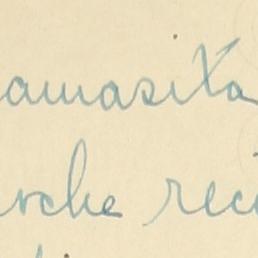 amasita
rche reci